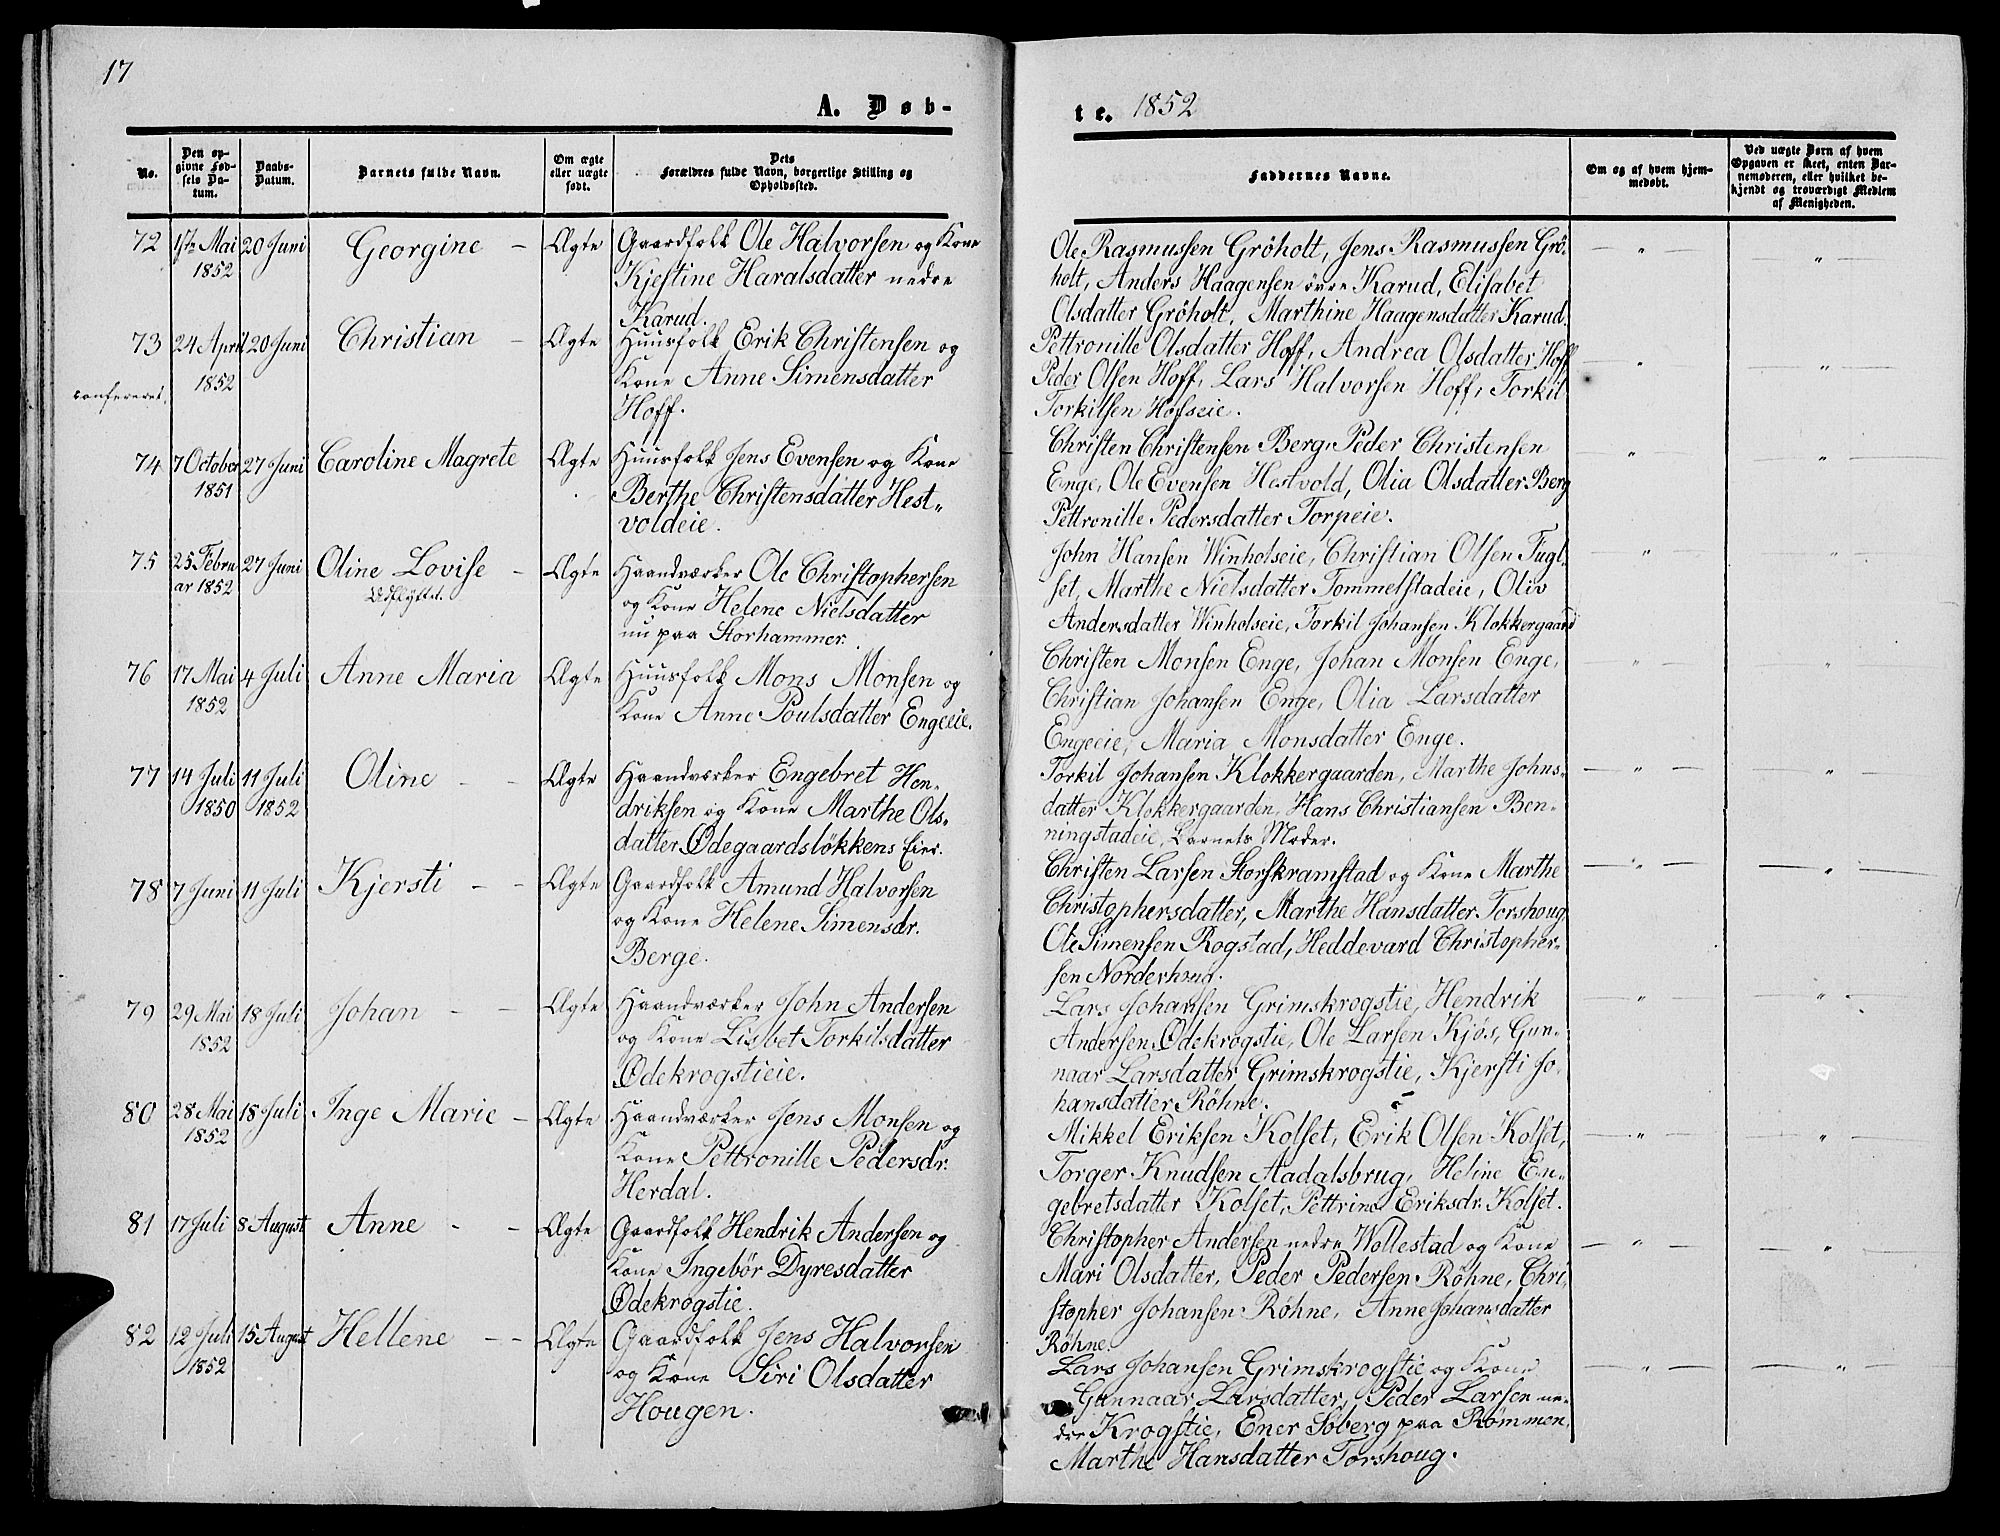 17
A. Døb-
te. 1852
No.
Den op-
givne Fød-
sels Da-
tum.
Daabs-
Datum.
Barnets fulde Navn.
Om ægte
eller uægte
født.
Dets
Forældres fulde Navn, borgerlige Stilling og
Opholdssted.
Faddernes Navne.
Om og af hvem hjem-
medøbt.
Ved uægte Børn af hvem
Opgaven er skeet, enten Bar-
nemoderen, eller hvilket be-
kjendt og troværdigt Medlem
af Menigheden.
72 1ste Mai 1852 20 Juni Georgine - Ægte
Gaardfolk Ole Halvorsen og Kone
Kjestine Haralsdatter nedre
Karud.
Ole Rasmussen Gröholt, Jens Rasmussen Grö-
holt, Anders Haagensen övre Karud, Elisabet
Olsdatter Gröholt, Marthine Haagensdatter Karud.
73 24 April 1852 20 Juni Christian - Ægte
confereret.
Huusfolk Erik Christensen og
Kone Anne Simensdatter
Hoff.
Pettronille Olsdatter Hoff, Andrea Olsdatter Hoff
Peder Olsen Hoff, Lars Halvorsen Hoff, Torkil
Torkilsen Hofseie.
74 7 October 1851 27 Juni Caroline Magrete Ægte
Huusfolk Jens Evensen og Kone
Berthe Christensdatter Hest-
voldeie.
Christen Christensen Berg, Peder Christensen
Enge, Ole Evensen Hestvold, Olia Olsdatter Berg
Pettronille Pedersdatter Torpeie.
75 25 Febru
ar 1852 27 Juni Oline Lovise - Ægte
Udflyttet.
Haandværker Ole Christophersen
og Kone Helene Nielsdatter
nu paa Storhammer.
John Hansen Winholseie, Christian Olsen Fugl-
set, Marthe Nielsdatter Tommelstadeie, Oliv
Andersdatter Winholseie, Torkil Johansen Klokkergaard
76 17 Mai 1852 4 Juli Anne Maria Ægte
Huusfolk Mons Monsen og
Kone Anne Poulsdatter Engeeie.
Christen Monsen Enge, Johan Monsen Enge,
Christian Johansen Enge, Olia Larsdatter
Engeeie, Maria Monsdatter Enge.
77 14 Juli 1850 11 Juli 1852 Oline - - Ægte
Haandværker Engebret Hen-
driksen og Kone Marthe Ols-
datter Ødegaardslökkens Eier.
Torkil Johansen Klokkergaarden, Marthe Johns-
datter Klokkergaarden, Hans Christiansen Ben-
ningstadeie, Barnets Moder.
78 7 Juni 11 Juli Kjersti - - Ægte
Gaardfolk Amund Halvorsen
og Kone Helene Simensdr.
Berge.
Christen Larsen Storskramstad og Kone Marthe
Christophersdatter, Marthe Hansdatter Torshoug
Ole Simensen Rogstad, Heddevard Christopher-
sen Norderhoug.
79 29 Mai 1852 18 Juli Johan - - Ægte
Haandværker John Andersen
og Kone Lisbet Torkilsdatter
Ødekrogstieie.
Lars Johansen Grimskrogstie, Hendrik
Andersen Ødekrogstie, Ole Larsen Kjös, Gun-
naar Larsdatter Grimskrogstie, Kjersti Jo-
hansdatter Röhne.
80 28 Mai 1852 18 Juli Inge Marie - Ægte
Haandværker Jens Monsen og
Kone Pettronille Pedersdr.
Herdal.
Mikkel Eriksen Kolset, Erik Olsen Kolset,
Torger Knudsen Aadalsbrug, Heline En-
gebretsdatter Kolset, Pettrine Eriksdr. Kolset.
81 17 Juli 8 August Anne - - Ægte
Gaardfolk Hendrik Andersen og
Kone Ingebör Dyresdatter
Ødekrogstie.
Christopher Andersen nedre Wollestad og Kone
Mari Olsdatter, Peder Pedersen Röhne, Chri-
stopher Johansen Röhne, Anne Johansdatter
Röhne.
82 12 Juli 1852 15 August Hellene - - Ægte
Gaardfolk Jens Halvorsen
og Kone Siri Olsdatter
Hougen.
Lars Johansen Grimskrogstie og Kone
Gunnaar Larsdatter, Peder Larsen ne-
dre Krogstie, Ener Söberg paa Rømmen,
Marthe Hansdatter Torshoug.